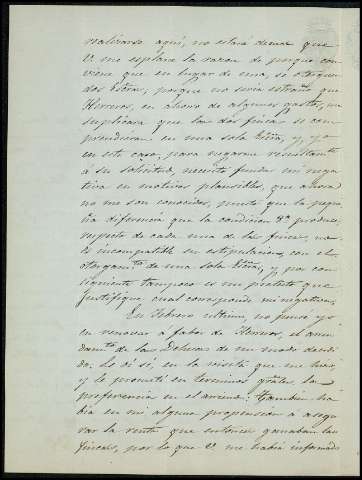 realizarse aquí, no estará demas que
V. me esplane la razon de porque con-
viene que en lugar de una, se otorguen
dos Escras, porque no seria estraño que
Herreros, en ahorro de algunos gastos, me
suplicara que las dos fincas se com-
prendieran en una sola Escra, y, yo
en este caso, para negarme
á su solicitud, necesito fundar mi nega-
tiva en motivos plausibles, que ahora
no me son conocidos, puesto que la peque-
ña diferencia que la condicion 8ª produce,
respecto de cada una de las fincas, no
és incompatible su estipulacion, con el
otorgamto de una sola Escra, y por con-
siguiente tampoco es un pretesto que
justifique, cual corresponde mi negativa.
En Febrero ultimo, no pensé yo
en renovar á fabor de Herreros, el arren-
damto de las Dehesas de un modo decidi-
do. Le oí si, en la visita que me hizo,
y le prometí en terminos grales la
preferencia en el arriendo: tambien ha-
bia en mi alguna propension á asegu-
rar la renta que entonces ganaban las
fincas, por lo que V. me habia informado